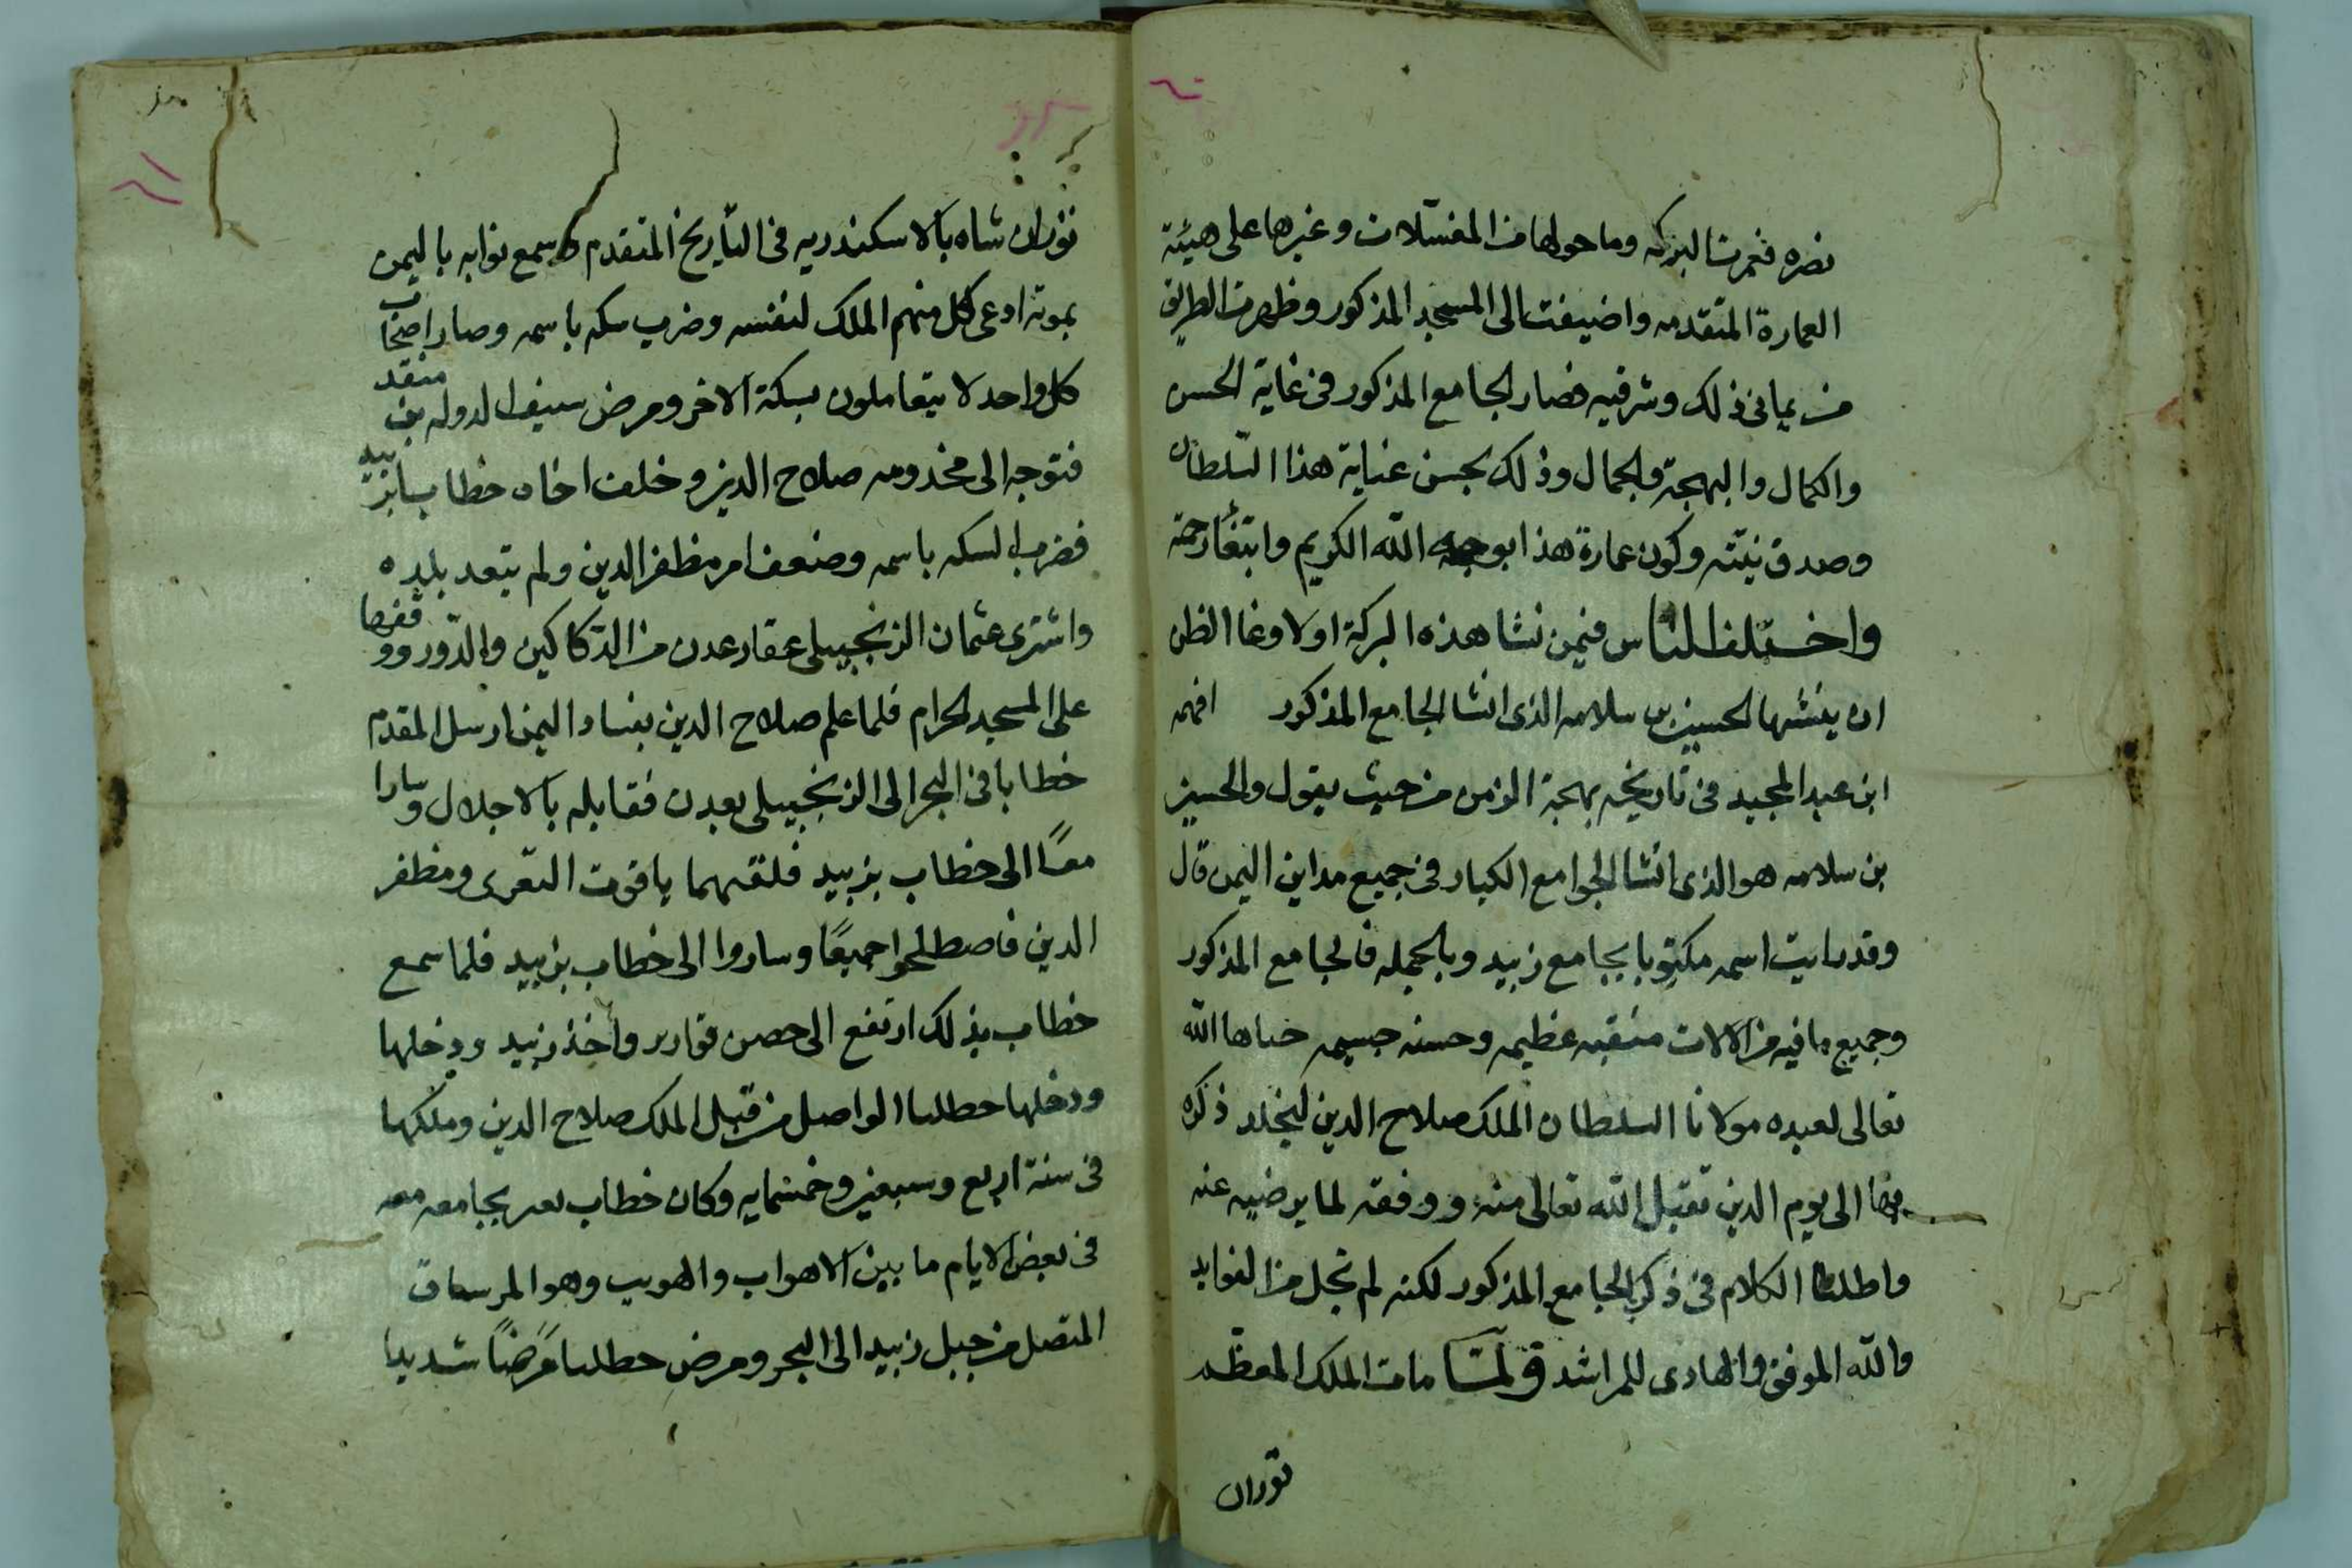 نصره فعمرت البركه وما حولها من المغتسلات وغيرها على هيئة
العمارة المتقدمه واضيفت الى المسجد المذكور وظهر من الطريق
من يمانى ذلك وشرقيه فصار الجامع المذكور فى غاية الحسن
والكمال والبهجة والجمال وذلك بحسن عناية هذا السلطان
وصدق نيّته وكون عمارة هذا بوجه الله الكريم وابتغآ رحمته
واختلف الناس فيمن نشا هذه البركة اولا وغا الظن
ان ينشها الحسين بن سلامه الذى انشا الجامع المذكور افهمه
ابن عبد المجيد فى تاريخه بهجة الزمن من حيث يقول والحسين
بن سلامه هو الذى انشا الجوامع الكبار فى جميع مداين اليمن قال
وقد رايت اسمه مكتوبا بجامع زبيد وبالجمله فالجامع المذكور
وجميع ما فيه من الالات منقبه عظيمه وحسنه جسيمه خباها الله
تعالى لعبده مولانا السلطان الملك صلاح الدين ليخلد ذكره
بها الى يوم الدين تقبل الله تعالى منه ووفقه لما يرضيه عنه
واطلنا الكلام فى ذكر الجامع المذكور لكنه لم تخل من الفوايد
والله الموفق والهادى للمراشد ولمّا مات الملك المعظم
توران
توران شاه بالاسكندريه فى التأريخ المتقدم وسمع نوابه باليمن
بموته ادعى كل منهم الملك لنفسه وضرب سكه باسمه وصار اصحاب
كل واحد لا يتعاملون بسكة الاخر ومرض سيف الدوله بن منقد
فتوجه الى مخدومه صلاح الدين وخلف اخاه خطاب بزبيد
فضرب السكه باسمه وضعف امر مظفر الدين ولم يتعد بلده
واشترى عثمان الزنجبيلى عقار عدن من الدّكاكين والدّور ووقفها
على المسجد الحرام فلما علم صلاح الدين بفساد اليمن ارسل المقدم
خطابا فى البحر الى الزنجبيلى بعدن فقابله بالاجلال وسارا
معًا الى خطاب بزبيد فلقيهما ياقوت التعزى ومظفر
الدين فاصطلحوا جميعًا وساروا الى خطاب بزبيد فلما سمع
خطاب بذلك ارتفع الى حصن قوارير واخذ زبيد ودخلها
ودخلها خطلبا الواصل من قبل الملك صلاح الدين وملكها
فى سنة اربع وسبعين وخمسمايه وكان خطاب بجامعه معه
فى بعض الايام ما بين الاهواب والهويب وهو
المتصل من جبل زبيد الى البحر ومرض خطلبا مرضًا شديدا